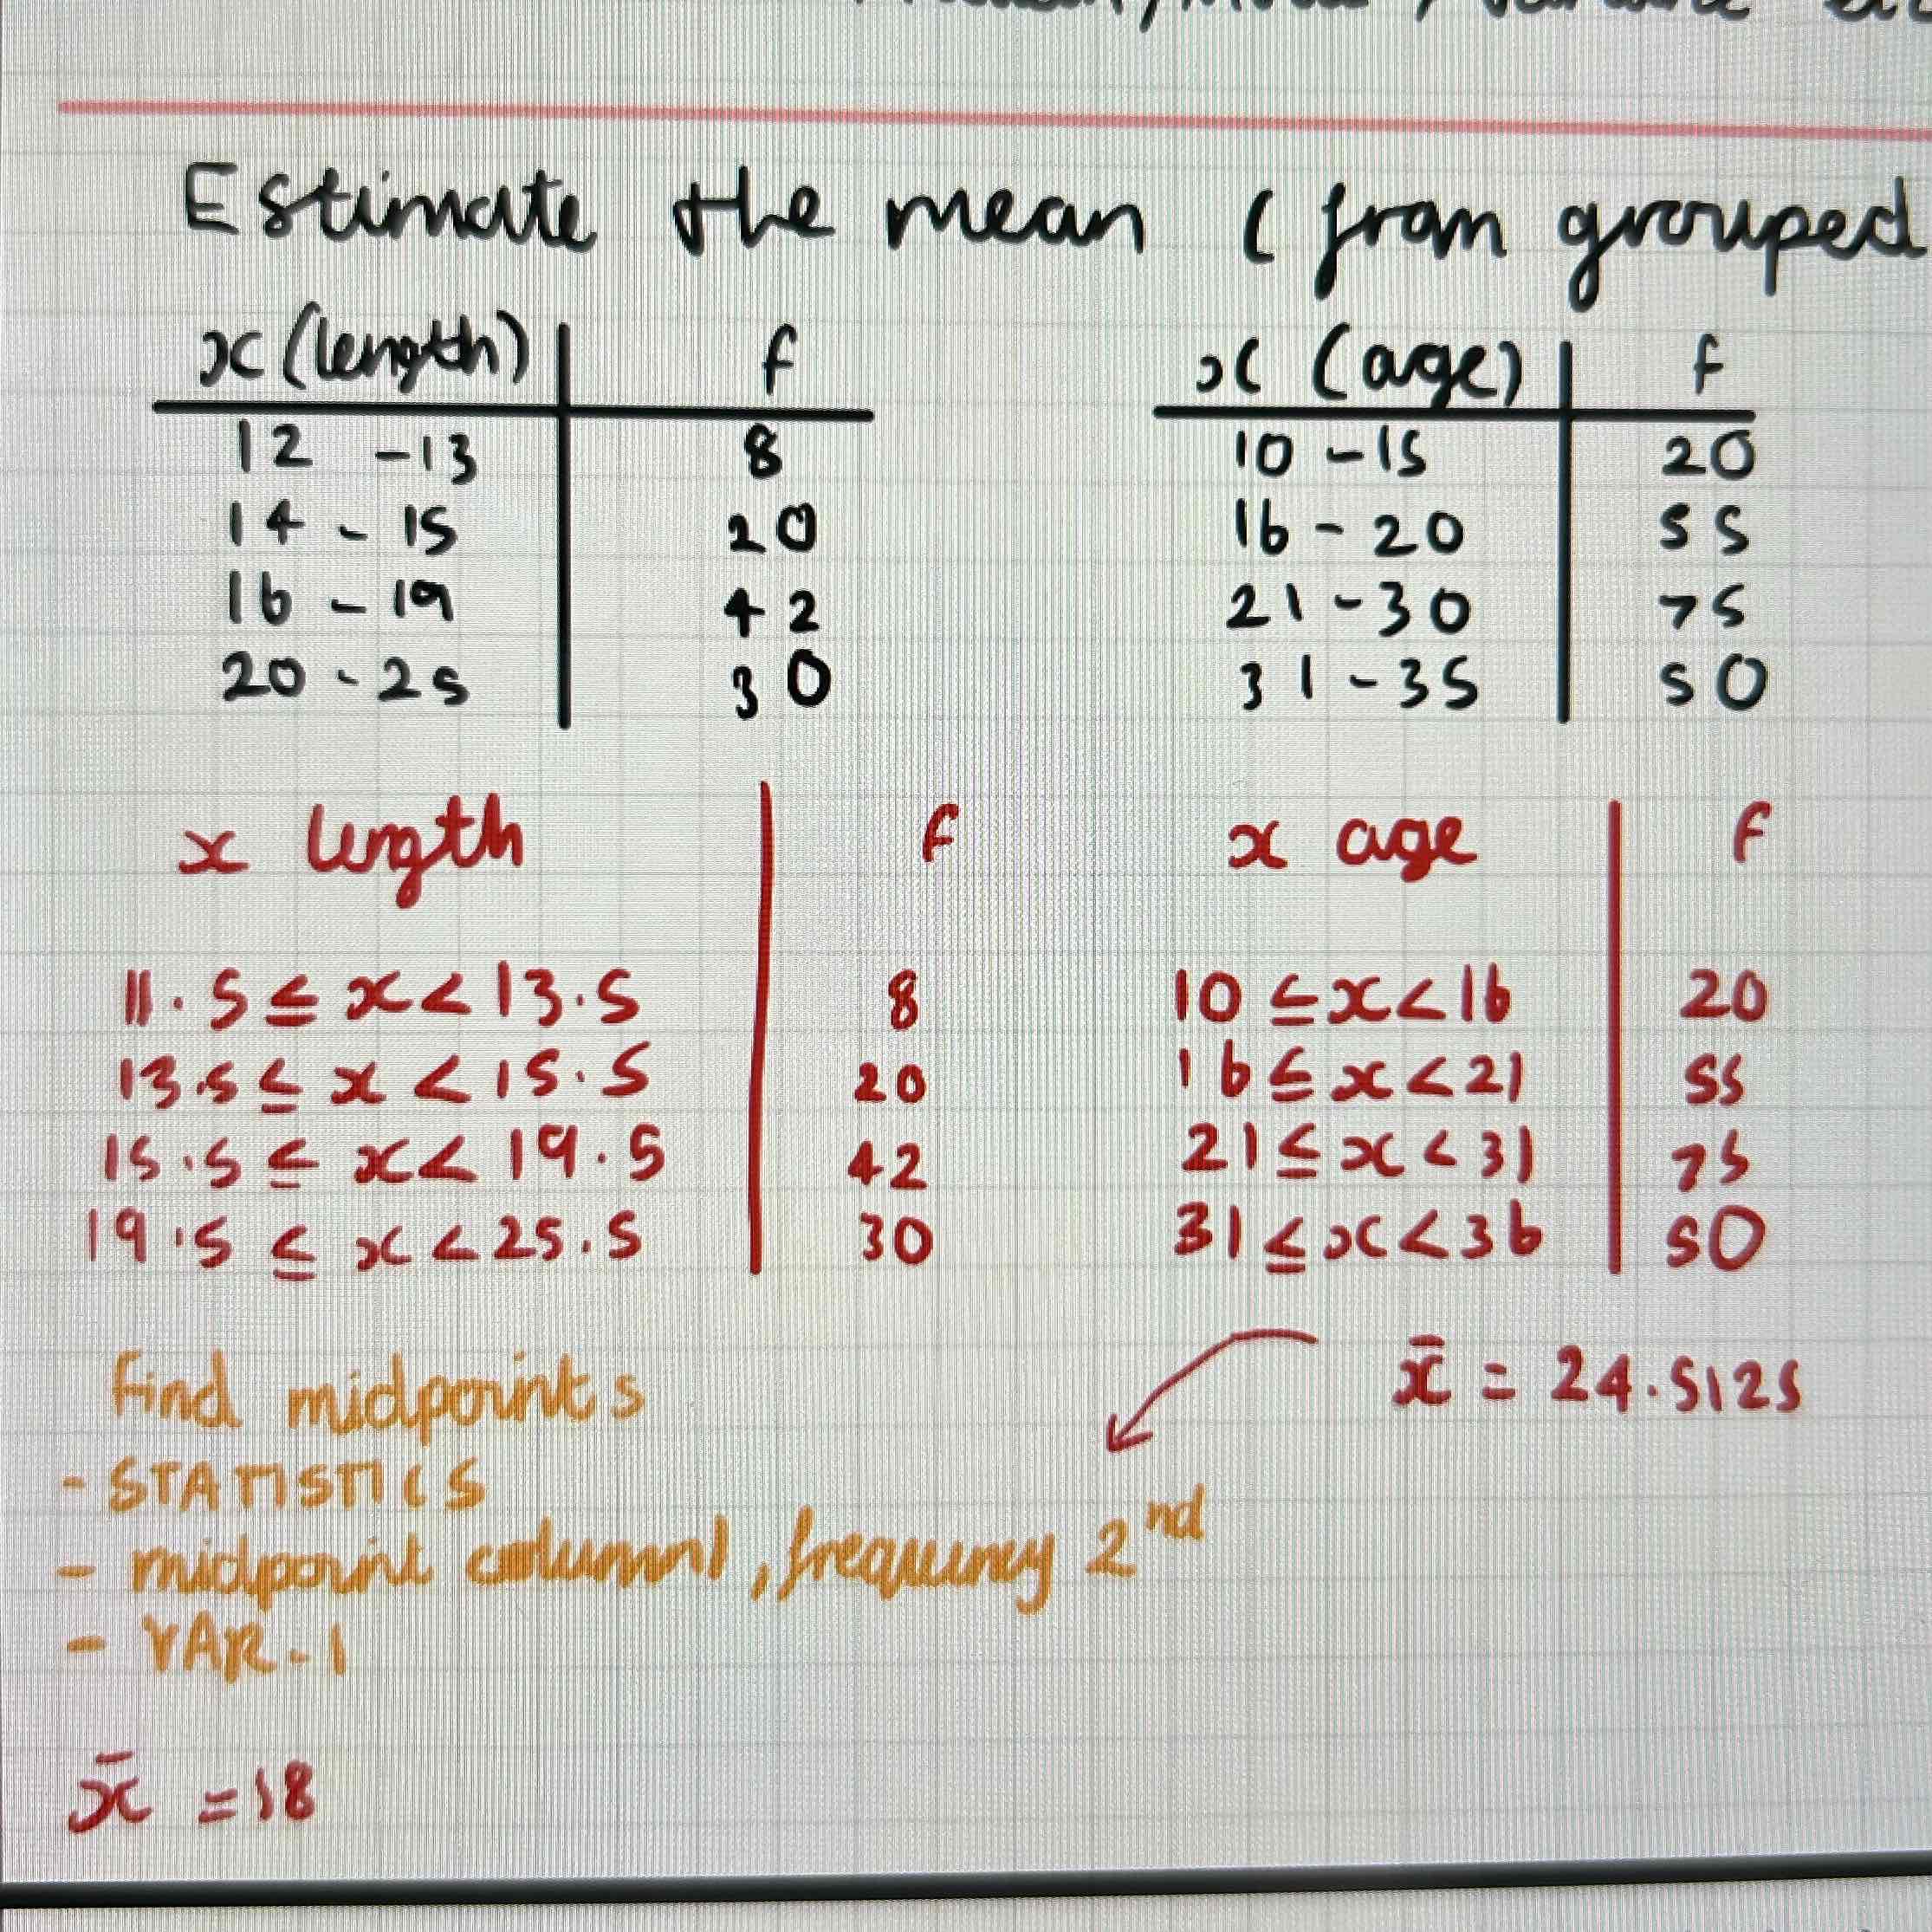 Estimate the mean (from grouped
x (length) f
12 -13 8
14 - 15 20
16 - 19 42
20 - 25 30
x (age) f
10 - 15 20
16 - 20 55
21 - 30 75
31 - 35 50
x length f
11.5 ≤ x < 13.5 8
13.5 ≤ x < 15.5 20
15.5 ≤ x < 19.5 42
19.5 ≤ x < 25.5 30
x age f
10 ≤ x < 16 20
16 ≤ x < 21 55
21 ≤ x < 31 75
31 ≤ x < 36 50
x̄ = 24.5125
Find midpoints
- STATISTICS
- midpoint column1, frequency 2nd
- VAR - 1
x̄ = 18